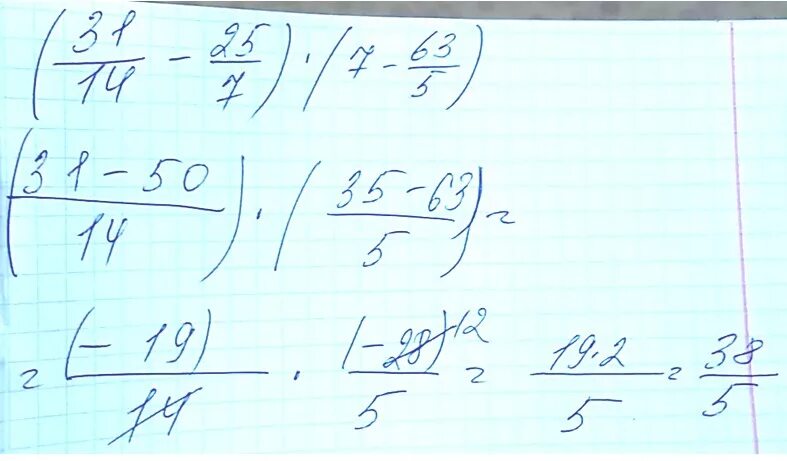 (31/14 - 25/7) · (7 - 63/5)
((31 - 50)/14) · ((35 - 63)/5) =
= (-19)/14 · (-28)/5 = 19·2/5 = 38/5